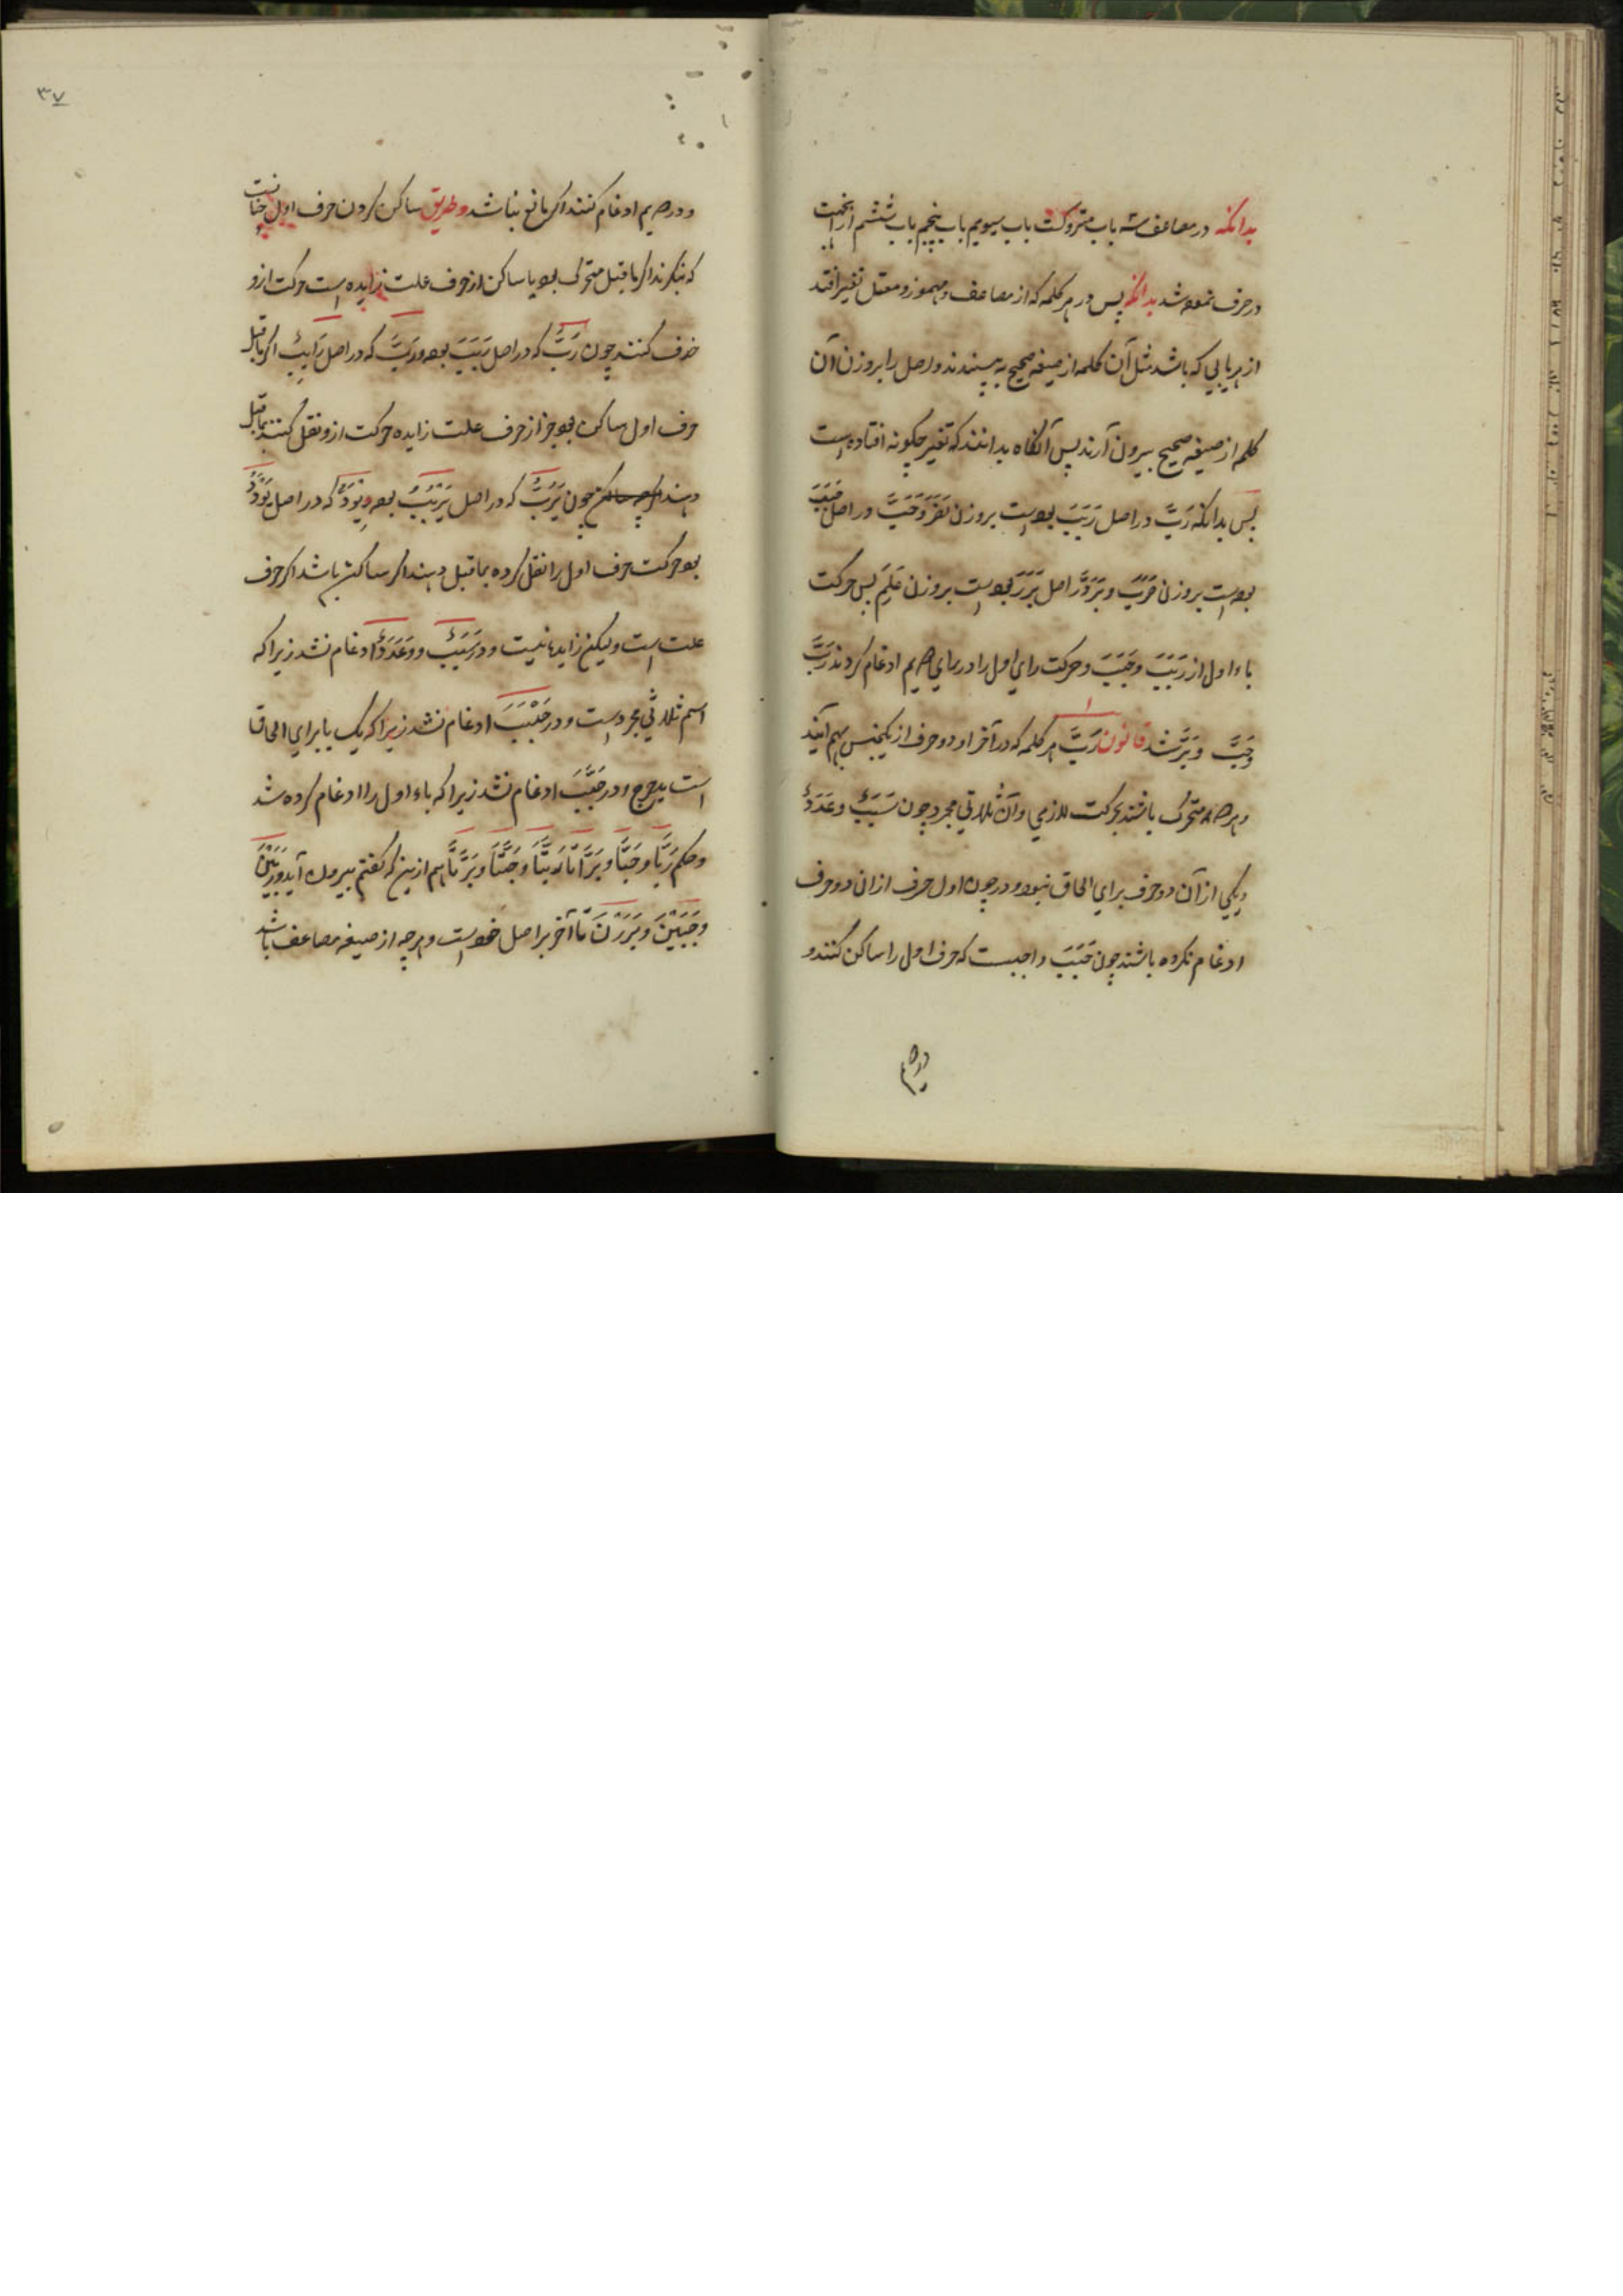 بدانکه در مضاعف سه باب متروکست باب سیویم باب پنجم باب ششم ازانجهت
در حرف نموده شد بدانکه پس در هر کلمه که از مضاعف و مهموز و معتل تغیر افتد
از هر بابی که باشد مثل آن کلمه از صیغه صحیح به بینند و اصل را بر وزن آن
کلمه از صیغه صحیح بیرون آرند پس آنکاه بدانند که تغیر چکونه افتاده است
پس بدانکه رَبَّ در اصل رَبَبَ بوده است بر وزن نَصَرَ وَحَبَّ در اصل حَبُبَ
بوده است بر وزن قَرُبَ و بَرَّ در اصل بَرِرَ بوده است بر وزن عَلِمَ پس حرکت
باء اول از رَبَبَ و حَبُبَ و حرکت رای اول را در رای دویم ادغام کردند رَبَّ
وحَبَّ وبَرَّ شد قانون رَبَّ هر کلمه که در آخر او دو حرف از یکجنس بهم آیند
و هر دو متحرک باشند بحرکت لازمی و آن ثلاثی مجرد چون سَبَبٌ وعَدَدٌ
و یکی از آن دو حرف برای الحاق نبود و در چون اول حرف ازان دو حرف
ادغام نکرده باشند چون حَبَّبَ واجبست که حرف اول را ساکن کنند و
در دویم
۳۷
و در دویم ادغام کنند اکر مانع نباشد و طریق ساکن کردن حرف اول چنانست
که بنکرند اکر ماقبل متحرک بود یا ساکن از حرف علت زایده است حرکت ازو
حذف کنند چون رَبَّ که در اصل رَبَبَ بوده و رَابٌّ که در اصل رَابِبٌ اکر ماقبل
حرف اول ساکن بود جز از حرف علت زایده حرکت ازو نقل کنند بماقبل
دهند چون یَرُبُّ که در اصل یَرْبُبُ بوده و یَوَدُّ که در اصل یَوْدَدُ
بود حرکت حرف اول را نقل کرده بماقبل دهند اکر ساکن باشد اکر حرف
علت است ولیکن زایده نیست و در سَبَبٌ و عَدَدٌ ادغام نشد زیرا که
اسم ثلاثی مجرد است و در جَلْبَبَ ادغام نشد زیرا که یک با برای الحاق
است بدحرج و در حَبَّبَ ادغام نشد زیرا که باء اول را ادغام کرده شد
وحکم رَبَّا وحَبَّا وبَرَّا تا رَبَّتَا وحَبَّتَا وبَرَّتَا هم ازین که کفتم بیرون آید و رَبَبْنَ
وحَبُبْنَ وبَرِرْنَ تا آخر بر اصل خود است و هر چه از صیغه مضاعف باشد